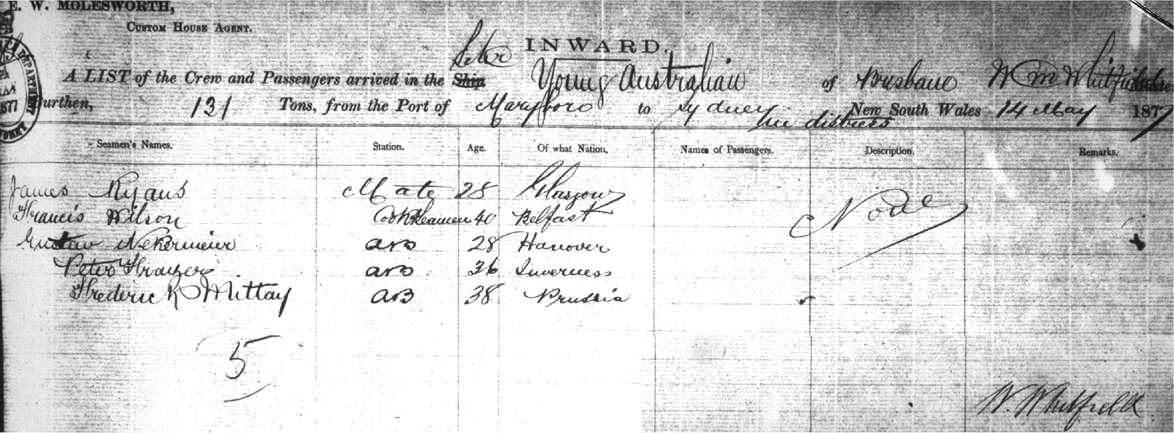 E. W. MOLESWORTH,
CUSTOM HOUSE AGENT.
INWARD.
A LIST of the Crew and Passengers arrived in the Ship Young Australian of Brisbane Wm Whitfield
Burthen, 131 Tons, from the Port of Maryboro to Sydney New South Wales 14 May 1877
in distress
Seamen's Names. Station. Age. Of what Nation. Names of Passengers. Description. Remarks.
James Ryans Mate 28 Glasgow None
Francis Wilson Cook & Seaman 40 Belfast
Gustav AB 28 Hanover
Peter Frazer AB 36 Inverness
Frederick Mittay AB 38 Prussia
5
W. Whitfield